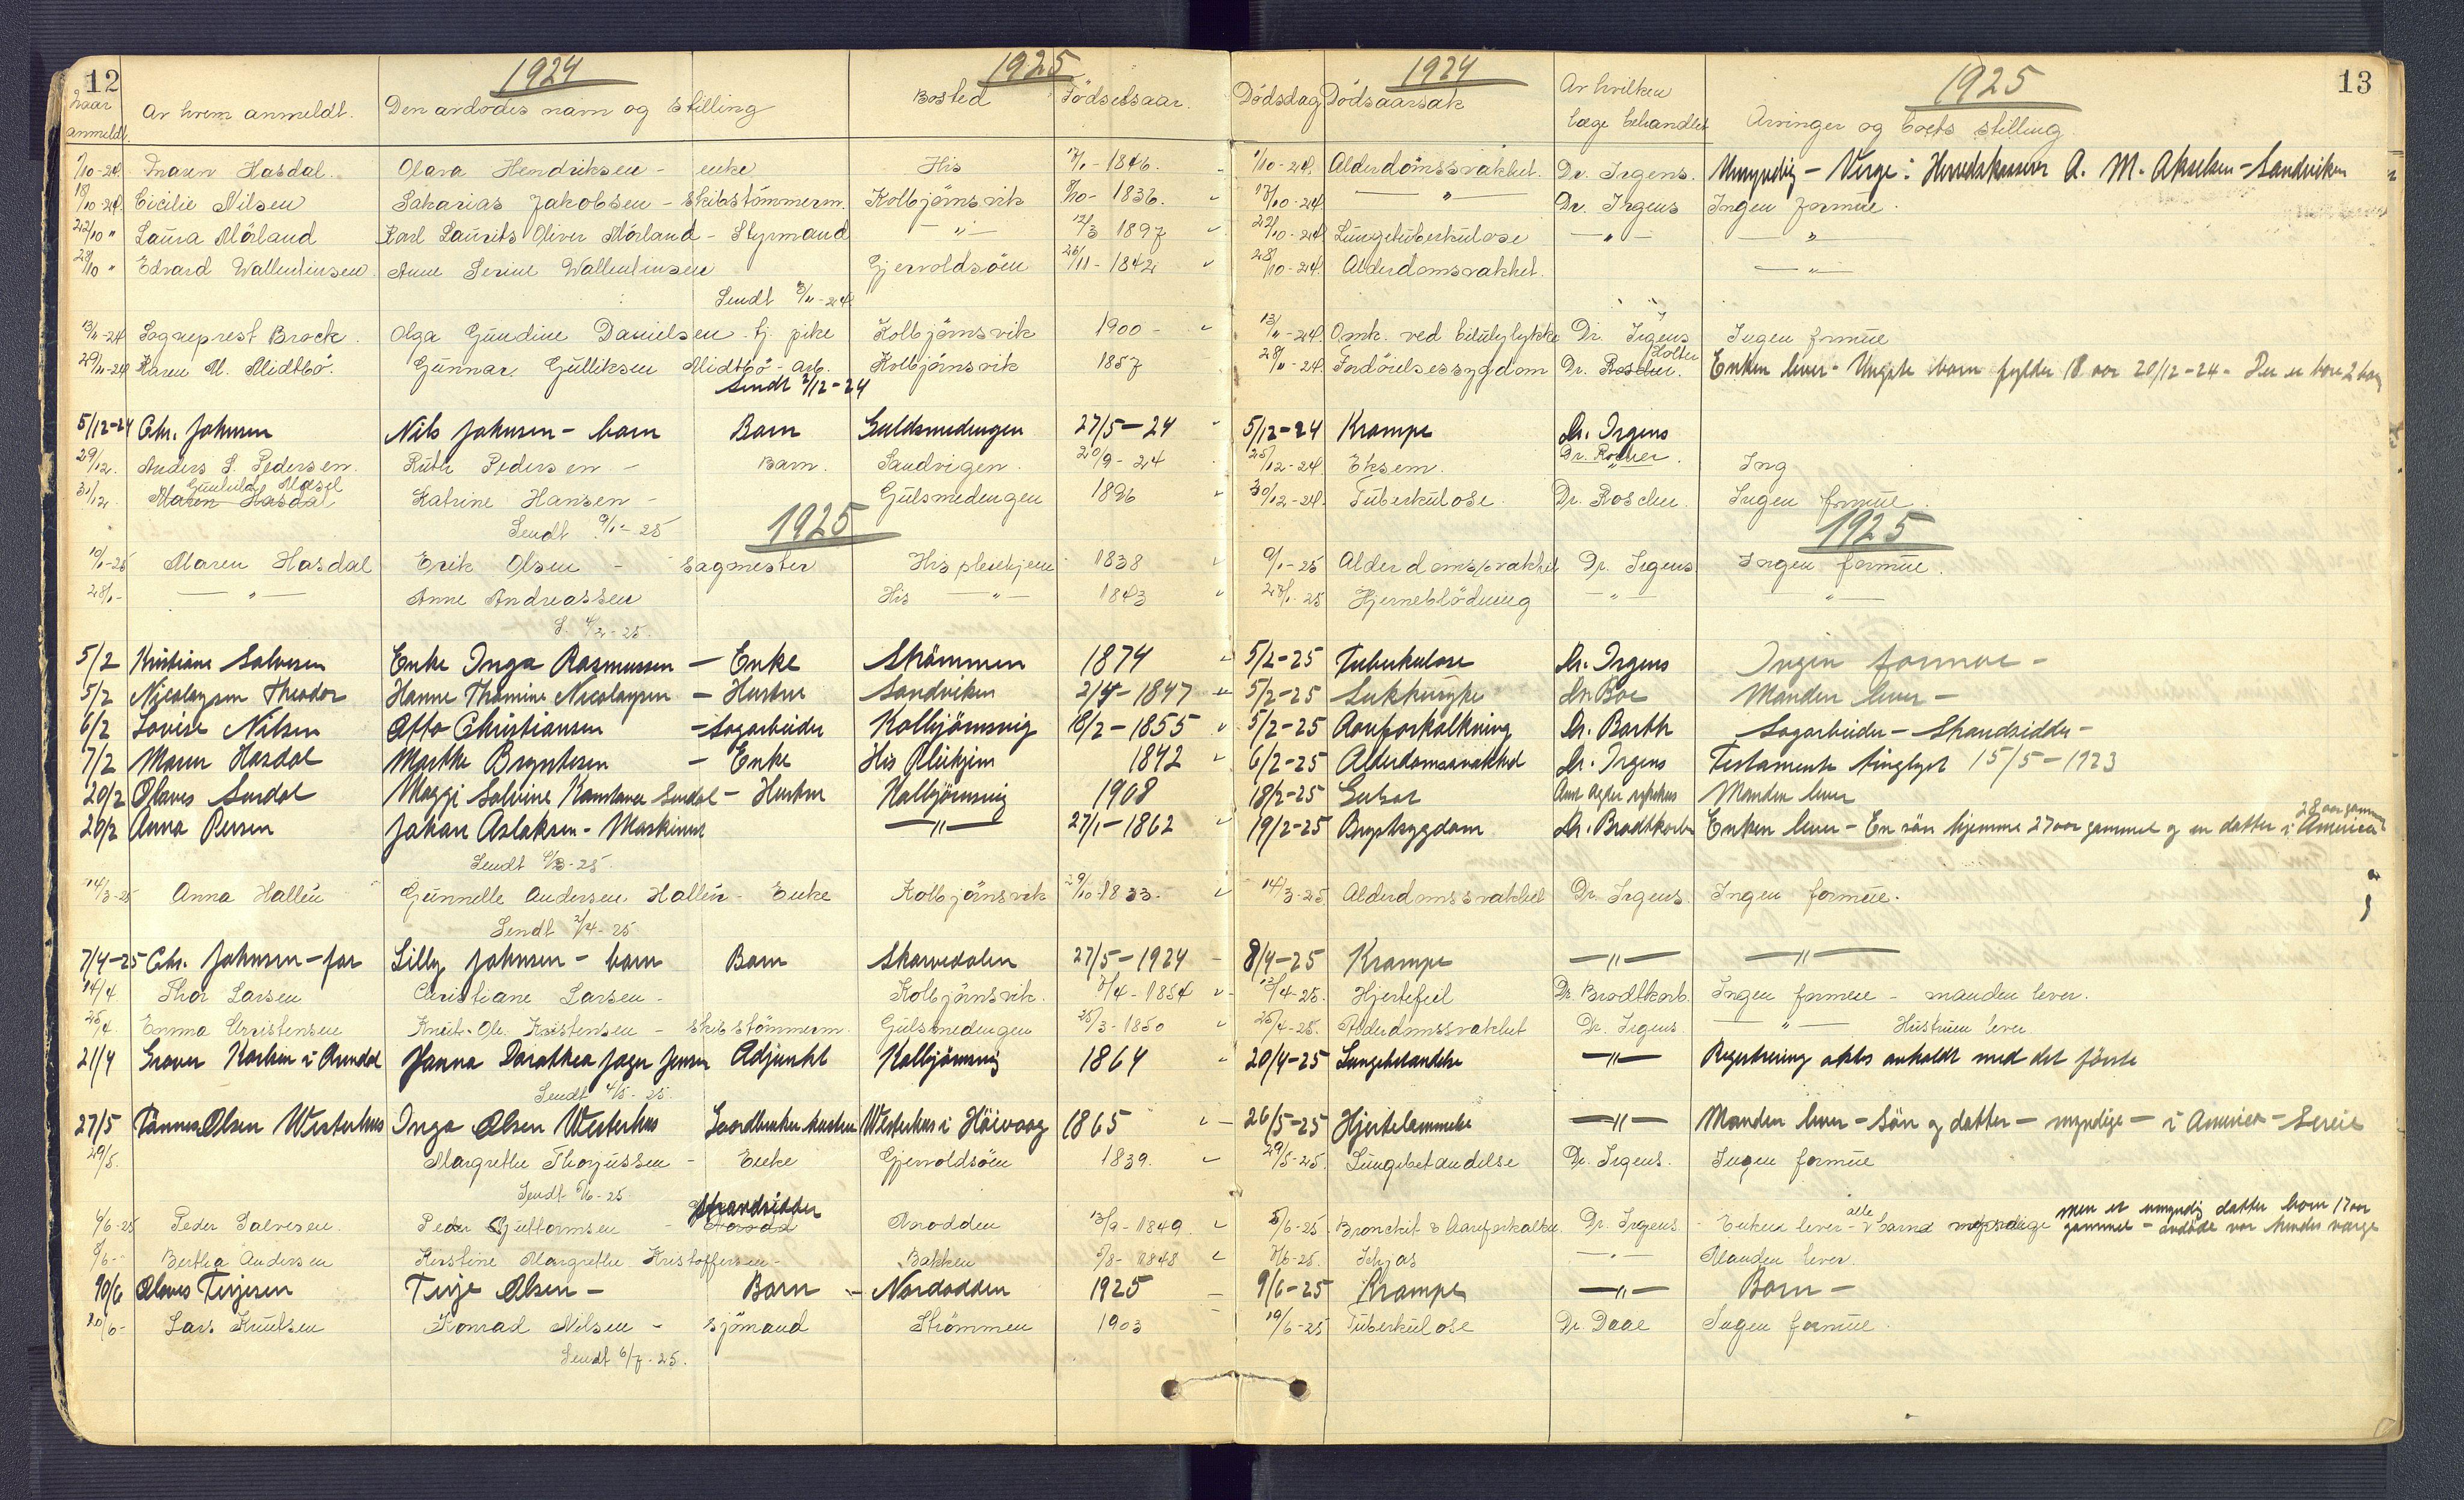 12 1924 1925 1924 1925 13
Naar anmeldt. Av hvem anmeldt. Den avdødes navn og stilling Bosted Fødselsaar. Dødsdag Dødsaarsak Av hvilken læge behandlet Arvinger og boets stilling
1/10-24. Maren Hasdal. Olava Hendriksen - enke His 1846. 1/10-24. Alderdomssvakhet. Dr. Irgens. Umyndig - Verge: Herredskasserer A. M. Akselsen - Sandviken
18/10-24. Cicilie Nilsen Sakarias Jakobsen - Skibstømmerm. Kolbjørnsvik 1836. 17/10-24 - " - Dr. Irgens Ingen formue.
22/10 " Laura Mørland Karl Laurits Oliver Mørland - Styrmand - " - 12/3 1897 22/10-24 Lungetuberkulose - " - - " -
28/10 " Edvard Wallentinsen Anne Serine Wallentinsen Gjervoldsøen 26/11-1842 28/10-24. Alderdomsvakhet. - " -
Sendt 3/11-24
13/11-24 Sogneprest Brock. Olga Gundine Danielsen - tj. pike Kolbjørnsvik 1900 - 13/11-24. Omk. ved bilulykke Dr. Irgens Ingen formue
29/11-24 Karen M. Midtbø. Gunnar Gulliksen Midtbø - arb. Kolbjørnsvik 1857 28/11-24. Fordøielsessygdom Dr. Roscher. Holter Enken lever - Yngste barn fylder 18 aar 20/12-24 - Der er bare 2 barn
Sendt 2/12-24
5/12-24 Chr. Johnsen Nils Johnsen - barn Barn Guldsmedengen 27/5-24 5/12-24 Krampe Dr. Irgens
29/12. Anders S. Pedersen. Ruth Pedersen - Barn. Sandvigen. 20/9-24 25/12-24 Eksem. Dr. Rocher. Ing
31/12. Maren Hasdal Gunhild Mæsel Katrine Hansen - Gulsmedengen 1896 30/12-24. Tuberkulose. Dr. Roscher. Ingen formue.
Sendt 9/1-25 1925 1925
10/1-25 Maren Hasdal Erik Olsen - Sagmester His pleiehjem 1838 9/1-25 Alderdomssvakhet Dr. Irgens Ingen formue.
28/1- - " - Anne Andreassen His - " - 1843 27/1-25 Hjerneblødning - " - - " -
S. 4/2-25.
5/2 Kristiane Salvesen Enke Inga Rasmussen - Enke Strømmen 1874 5/2-25 Tuberkulose Dr. Irgens Ingen formue -
5/2 Nicolaysen Theodor Hanne Thomine Nicolaysen - Hustru Sandviken 2/4-1847 5/2-25 Sukkersyke Dr. Boe Manden lever -
6/2 Lovise Nilsen Otto Christiansen - Sagarbeider Kolbjørnsvig 18/2-1855 5/2-25 Aareforkalkning Dr. Barth Sagarbeider - Strandsidder -
7/2 Maren Hasdal Marthe Bryntesen - Enke His Pleiehjem 1842 6/2-25 Alderdomssvakhet Dr. Irgens Testamente tinglyst 15/5-1923
20/2 Olaves Surdal Maggi Salvine Konstance Surdal - Hustru Kolbjørnsvig 1908 18/2-25 Aust Agder sykehus Manden lever
20/2 Anna Persen Johan Aslaksen - Maskinist - " - 27/1-1862 19/2-25 Brystsygdom Dr. Brodtkorb Enken lever - En søn hjemme 27 aar gammel og en datter i America 28 aar gammel
Sendt 6/3-25
14/3-25 Anna Hallén Gunnelle Andersen Hallén - Enke Kolbjørnsvik 29/10-1833. 14/3-25 Alderdomssvakhet Dr. Irgens. Ingen formue.
Sendt 2/4-25
7/4-25 Chr. Johnsen - far Lilly Johnsen - barn Barn Skarvedalen 27/5-1924 8/4-25 Krampe - " - - " -
14/4 Thor Larsen Christiane Larsen - Kolbjørnsvik. 7/4-1854 13/4-25. Hjertefeil Dr. Brodtkorb. Ingen formue - manden lever.
25/4. Emma Christensen Knut Ole Kristensen - Skibstømmerm. Gulsmedengen 25/3-1850 25/4-25. Alderdomssvakhet Dr. Irgens - " - Hustruen lever.
21/4 Graver Karlsen i Arendal Hanna Dorothea Jager Jensen Adjunkt Kolbjørnsvig 1864 20/4-25 Lungebetændelse - " - Registrering aktes anholdt med det første
Sendt 4/5-25.
27/5 Tønnes Olsen Westerhus Inga Olsen Westerhus Gaardbruker hustru Westerhus i Høivaag 1865 26/5-25 Hjertelammelse - " - Manden lever - Søn og datter - myndige - i America -
29/5. Margrethe Thorjussen - Enke Gjervoldsøen 1839. 29/5-25. Lungebetændelse Dr. Irgens. Ingen formue
Sendt 5/6-25.
6/6-25 Peder Salvesen. Peder Guttormsen - Strandsidder Aaodden 13/9-1849 5/6-25. Bronchit & Aareforkalkn. Dr. Irgens - Enken lever - alle barna myndige men er umyndig datter barn 17 aar gammel - avdøde var hendes værge
8/6- Bertha Andersen Kirstine Margrethe Kristoffersen - Bakken 5/8-1848 7/6-25. Ischjas - " - Manden lever.
10/6 Olaves Terjesen Terje Olsen - Barn - Nordodden 1925 9/6-25 Krampe - " - Barn -
20/6- Lars Knutsen Konrad Nilsen - Sjømand Strømmen 1903 19/6-25 Tuberkulose Dr. Daae Ingen formue.
Sendt 6/7-25.